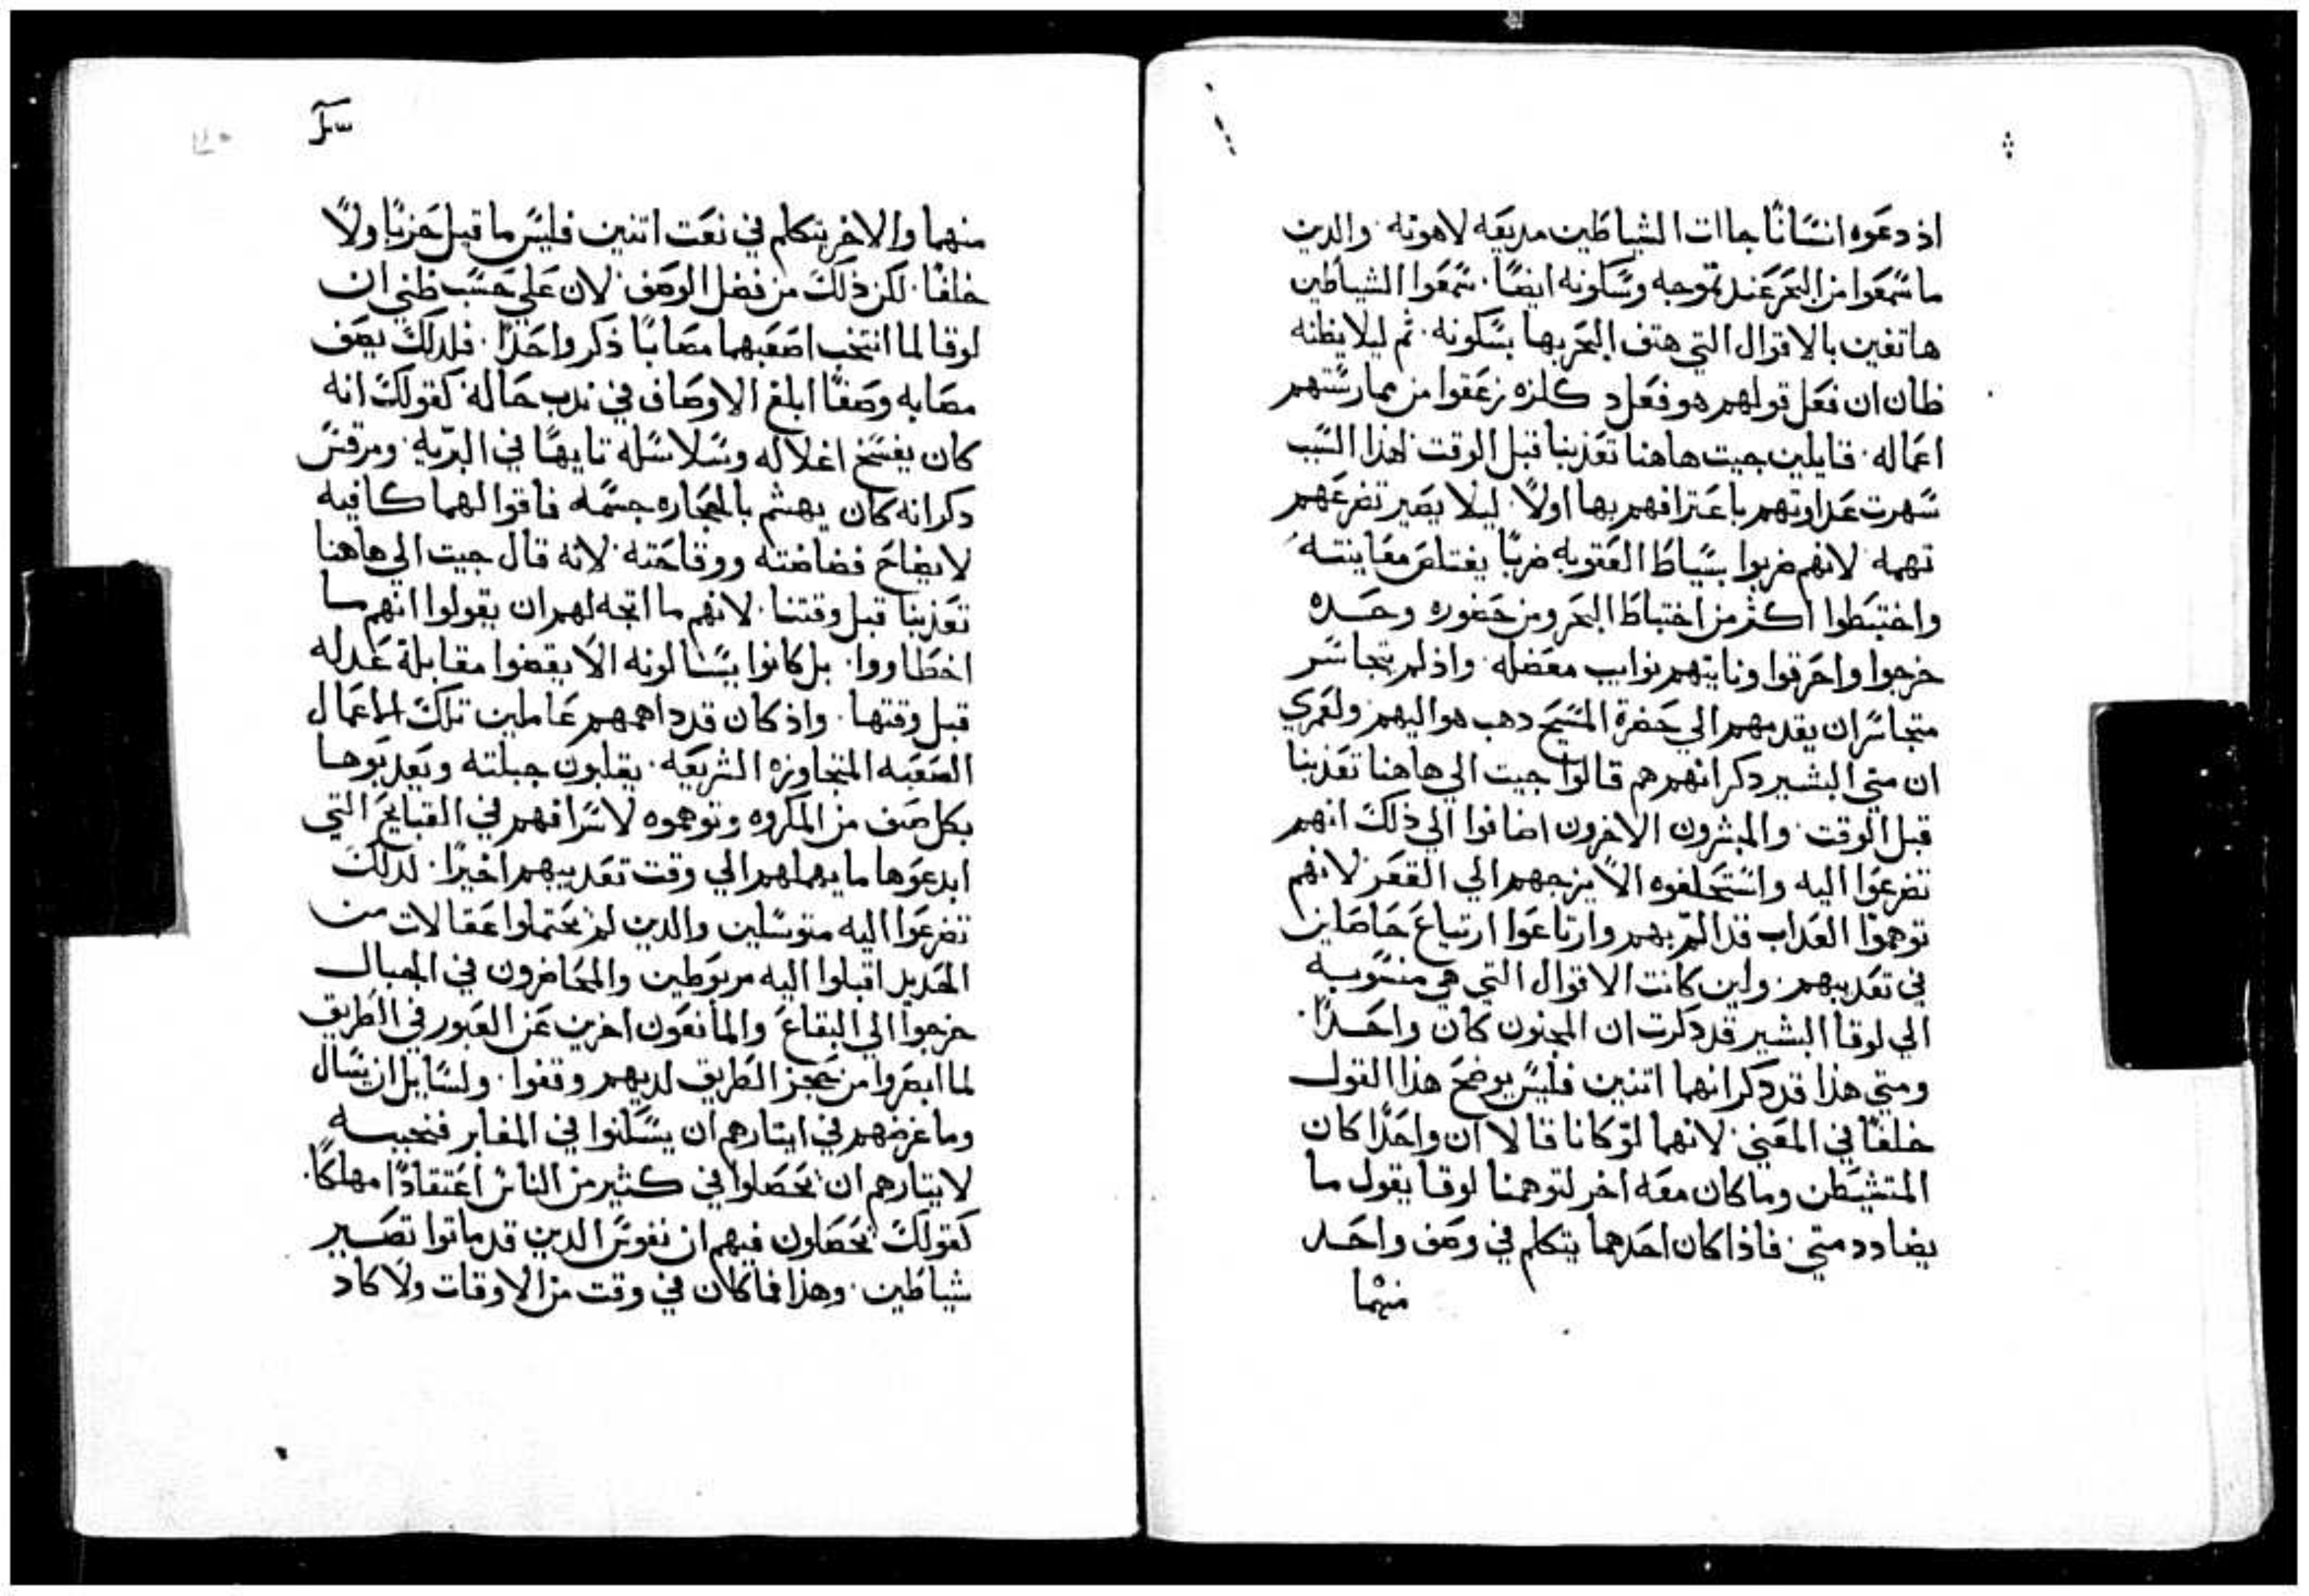 اذ دعوه انسانًا جاات الشياطين مديعه لاهوته · والدين
ما سمعوا من البحر عند تموجه وسكونه ايضًا · سمعوا الشياطين
هاتفين بالاقوال التي هتف البحر بها بسكونه · ثم ليلا يظنه
ظان ان فعل قولهم هو فعل د كلزه زعقوا من ممارستهم
اعماله · قايلين جيت هاهنا تعذبنا قبل الوقت · لهذا السبب
شهرت عداوتهم باعترافهم بها اولًا · ليلا يصير تضرعهم
تهمه · لانهم ضربوا بسياط العقوبه ضربًا يغتاص معاينته
واختبطوا اكثر من اختباط البحر ومن حضوره وحده
خرجوا واحرقوا ونابتهم نوايب معضله · واذ لم يتجاسر
متجاسر ان يقدمهم الي حضرة المسيح دهب هو اليهم · ولعمري
ان متي البشير دكر انهم هم قالوا جيت الي هاهنا تعذبنا
قبل الوقت · والمبشرون الاخرون اضافوا الي ذلك انهم
تضرعوا اليه واستحلفوه الا يزجهم الي القعر · لانهم
توهموا العداب قد الم بهم وارتاعوا ارتياع حاصلين
في تعديبهم · ولين كانت الاقوال التي هي منسوبه
الي لوقا البشير قد دكرت ان المجنون كان واحدًا ·
ومتي هذا قد دكر انهما اتنين فليس يوضح هذا القول
خلفًا في المعني · لانهما لو كانا قالا ان واحدًا كان
المتشيطن وما كان معه اخر لتوهمنا لوقا يقول ما
يضادد متي · فاذا كان احدهما يتكلم في وصف واحد
منهما
منهما والاخر يتكلم في نعت اتنين فليس ما قيل حربًا ولا
خلفًا · لكن ذلك من فضل الوصف · لان علي حسب ظني ان
لوقا لما انتخب اصعبهما مصابًا ذكر واحدًا · فلدلك يصف
مصابه وصفًا ابلغ الاوصاف في ندب حاله · كقولك انه
كان يفسخ اغلاله وسلاسله تايهًا في البريه · ومرقس
دكر انه كان يهشم بالحجاره جسمه فاقوالهما كافيه
لايضاح فضاضته ووقاحته · لانه قال جيت الي هاهنا
تعذبنا قبل وقتنا · لانهم ما اتجه لهم ان يقولوا انهم ما
اخطاووا · بل كانوا يسالونه الا يقضوا مقابلة عدله
قبل وقتها · واذ كان قد داهمهم عاملين تلك الاعمال
الصعبه المتجاوزه الشريعه · يقلبون جبلته ويعدبوها
بكل صنف من المكروه وتوهموه لاسرافهم في القبايح التي
ابدعوها ما يمهلهم الي وقت تعديبهم اخيرًا · لدلك
تضرعوا اليه متوسلين والدين لم يحتملوا عقالات من
الحديد اقبلوا اليه مربوطين والمحاضرون في الجبال
خرجوا الي البقاع والمانعون اخرين عن العبور في الطريق
لما ابصروا من حجز الطريق لديهم وقفوا · ولسايل ان يسال
وما غرضهم في ايتارهم ان يسكنوا في المقابر فنجيبه
لايتارهم ان يحصلوا في كثير من الناس اعتقادًا مهلكًا ·
كقولك يحصلون فيهم ان نفوس الدين قد ماتوا تصير
شياطين · وهذا فما كان في وقت من الاوقات ولا كاد